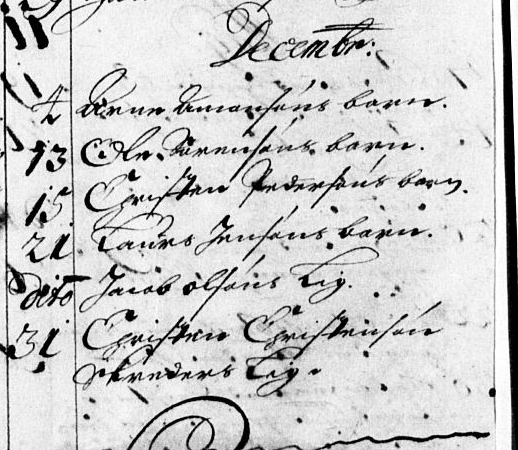 11
Decembr:
4 Arne Amonsøns barn.
13 Ole Sørensøns barn.
15 Christen Pedersøns barn.
21 Laurs Jensøns barn.
dito Jacob olsøns Lig.
31 Christen Christensøn
Skreders Lig.